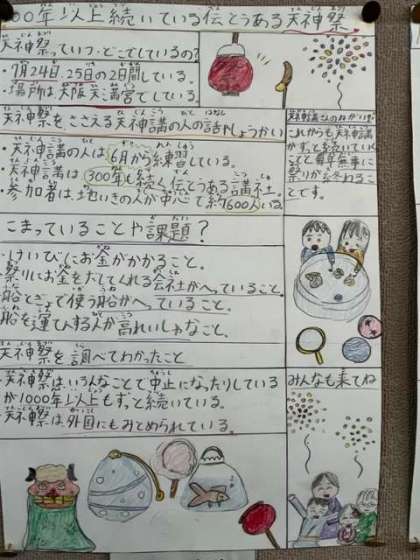 00年以上続いている伝とうある天神祭
天神祭っていつ・どこでしているの?
・7月24日.25日の2日間している。
・場所は大阪天満宮でしている。
天神祭をささえる天神講の人の話をしょうかい
・天神講の人は6月から練習している。
・天神講は300年も続く伝とうある講社。
・参加者は地いきの人が中心で約600人いる。
これからも天神講
がずっと続いていく
ことと毎年無事に
祭りが終わるこ
とです。
こまっていることや課題?
・けいびにお金がかかること。
・祭りにお金をだしてくれる会社がへっていること。
・船とぎょで使う船がへっていること。
・船を運てんする人が高れいしゃなこと。
天神祭を調べてわかったこと
・天神祭はいろんなことで中止になったりしている
が1000年以上もずっと続いている。
・天神祭は外国にもみとめられている。
みんなも来てね